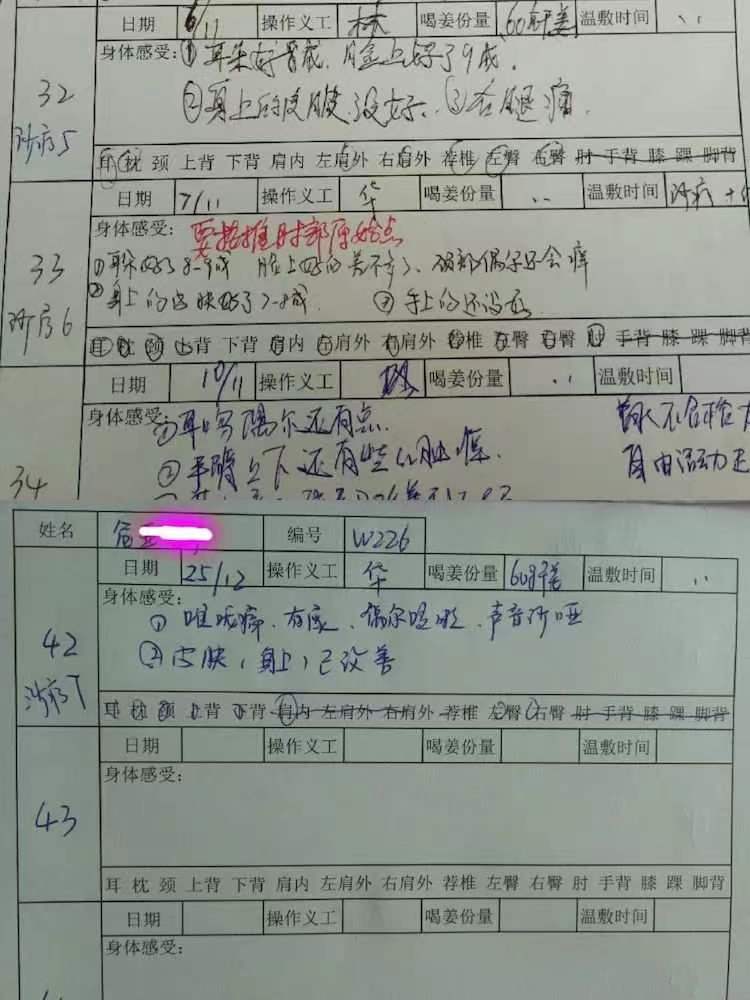 日期 6/11 操作义工 林 喝姜份量 60 温敷时间 ..
身体感受: ① 耳朵好 成, 脸上好了9成.
32 ② 身上的皮肤没好. ③ 右腿痛.
治疗5
耳 枕 颈 上背 下背 肩内 左肩外 右肩外 荐椎 左臀 右臀 肘 手背 膝 踝 脚背
日期 7/11 操作义工 华 喝姜份量 .. 温敷时间
身体感受: 要按推肘部原始点
33 ① 耳朵好了8-9成 脸上好的差不多了、 偶尔还会痒
② 身上的皮肤好了7-8成 ③ 手上的还没好
治疗6
耳 枕 颈 上背 下背 肩内 左肩外 右肩外 荐椎 左臀 右臀 肘 手背 膝 踝 脚背
日期 10/11 操作义工 喝姜份量 .. 温敷时间
身体感受: ① 耳 偶尔还有点
34 ② 手 上下还有些 痒.
自由活动
姓名 编号 W226
日期 25/12 操作义工 华 喝姜份量 60 温敷时间 ..
身体感受:
42 ① 喉咙痛、有痰、偶尔 、声音沙哑
② 皮肤(身上)已改善
治疗7
耳 枕 颈 上背 下背 肩内 左肩外 右肩外 荐椎 左臀 右臀 肘 手背 膝 踝 脚背
日期 操作义工 喝姜份量 温敷时间
身体感受:
43
耳 枕 颈 上背 下背 肩内 左肩外 右肩外 荐椎 左臀 右臀 肘 手背 膝 踝 脚背
日期 操作义工 喝姜份量 温敷时间
身体感受: